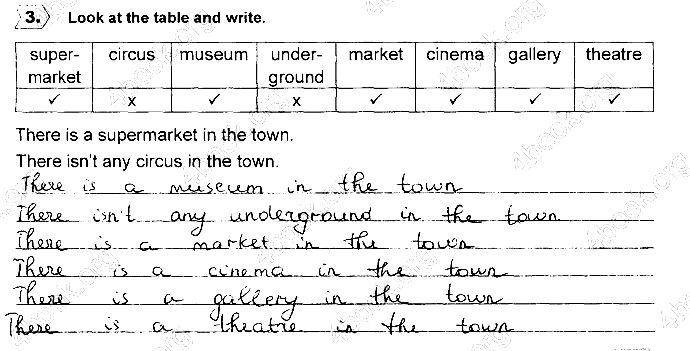 3. Look at the table and write.
super-market circus museum under-ground market cinema gallery theatre
✓ x ✓ x ✓ ✓ ✓ ✓
There is a supermarket in the town.
There isn't any circus in the town.
There is a museum in the town
There isn't any underground in the town
There is a market in the town
There is a cinema in the town
There is a gallery in the town
There is a theatre in the town
4book.org